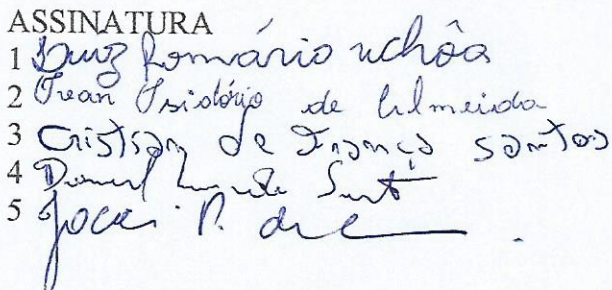 ASSINATURA
1 Luiz Romário uchôa
2 Jean Isidório de Almeida
3 Cristian de França santos
4 Daniel
5 Jocei P. de